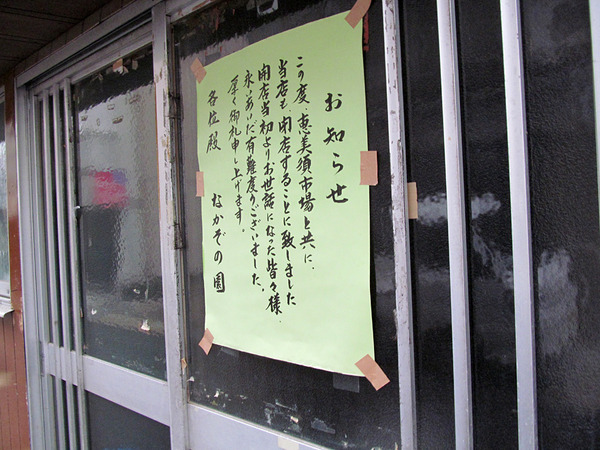 お知らせ
この度、恵美須市場と共に、
当店も、閉店することに致しました
開店当初よりお世話になった皆々様、
永いあいだ有難度うございました。
厚く御礼申し上げます。
各位殿 なかぞの園